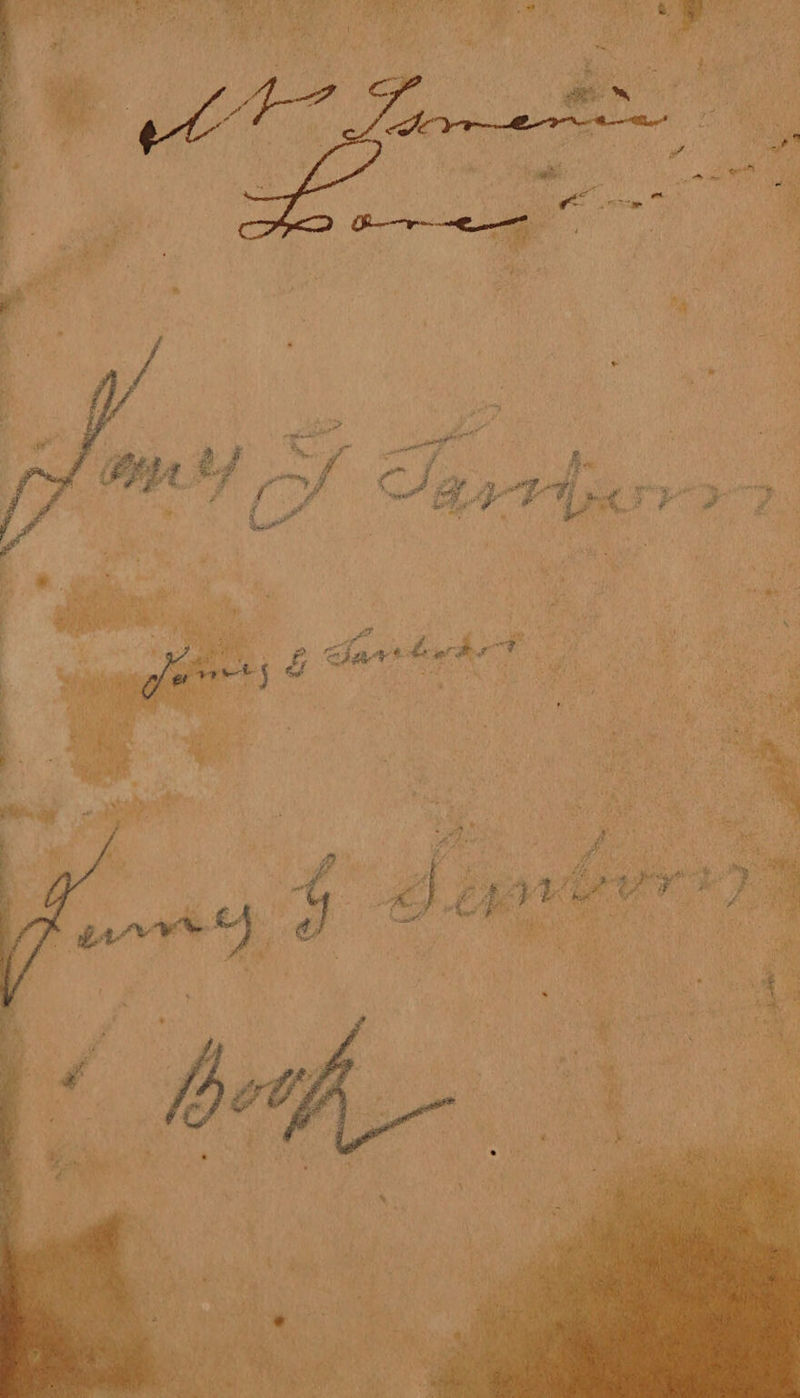 Mrs Ismenia
Lane
James G Sanborn
James G Sanborn
James G Sanborn
Book